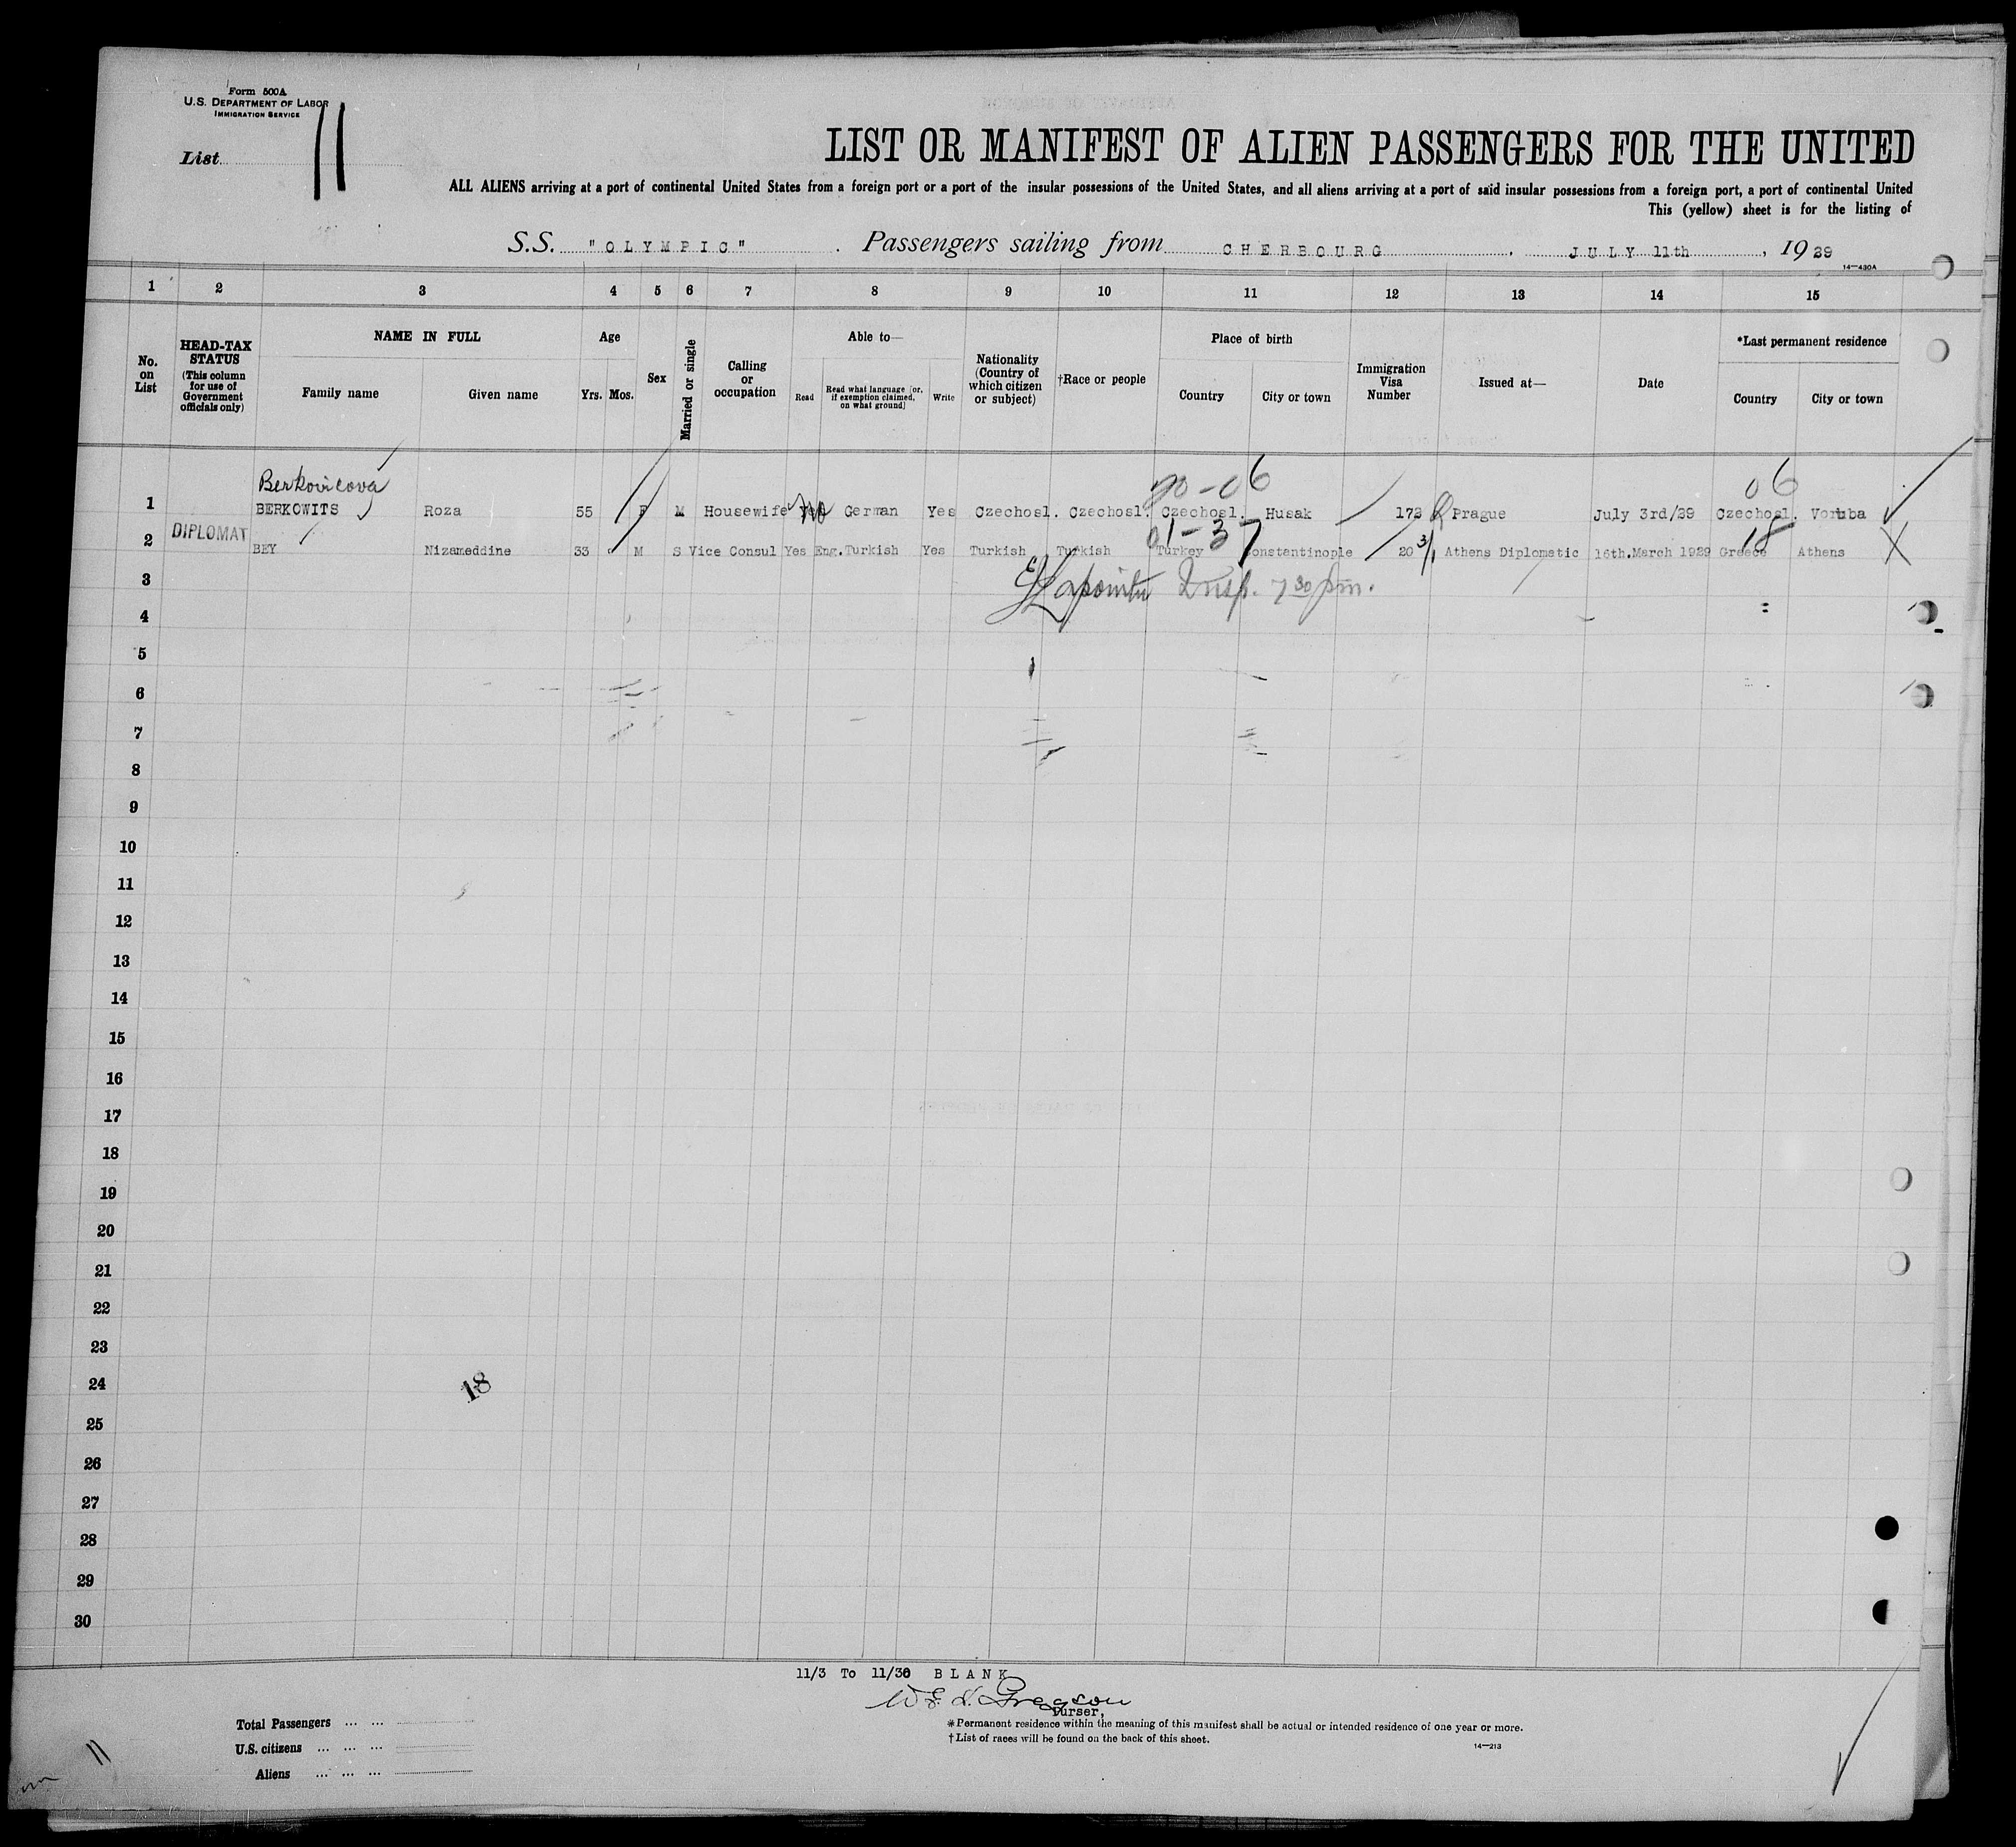 Form 500A
U.S. DEPARTMENT OF LABOR
IMMIGRATION SERVICE
List 11
LIST OR MANIFEST OF ALIEN PASSENGERS FOR THE UNITED
ALL ALIENS arriving at a port of continental United States from a foreign port or a port of the insular possessions of the United States, and all aliens arriving at a port of said insular possessions from a foreign port, a port of continental United
This (yellow) sheet is for the listing of
S.S. "OLYMPIC" Passengers sailing from CHERBOURG, JULY 11th, 1929
14—430A
1 2 3 4 5 6 7 8 9 10 11 12 13 14 15
No. on List
HEAD-TAX STATUS (This column for use of Government officials only)
NAME IN FULL
Family name Given name
Age
Yrs. Mos.
Sex
Married or single
Calling or occupation
Able to—
Read Read what language [or, if exemption claimed, on what ground] Write
Nationality (Country of which citizen or subject)
†Race or people
Place of birth
Country City or town
Immigration Visa Number
Issued at—
Date
*Last permanent residence
Country City or town
Berkovicova 06
1 BERKOWITS Roza 55 F M Housewife Yes No German Yes Czechosl. Czechosl. Czechosl. Husak 172 Prague July 3rd/29 Czechosl.
01-37 18
2 DIPLOMAT BEY Nizameddine 33 M S Vice Consul Yes Eng.Turkish Yes Turkish Turkish Turkey Constantinople 20 3/1 Athens Diplomatic 16th.March 1929 Greece Athens X
3 Insp. 7 30 pm.
4
5
6
7
8
9
10
11
12
13
14
15
16
17
18
19
20
21
22
23
24
18
25
26
27
28
29
30
11/3 To 11/30 BLANK
Gregson
Purser,
Total Passengers ... ...
U.S. citizens ... ... ...
Aliens ... ... ...
*Permanent residence within the meaning of this manifest shall be actual or intended residence of one year or more.
†List of races will be found on the back of this sheet.
14—213
11